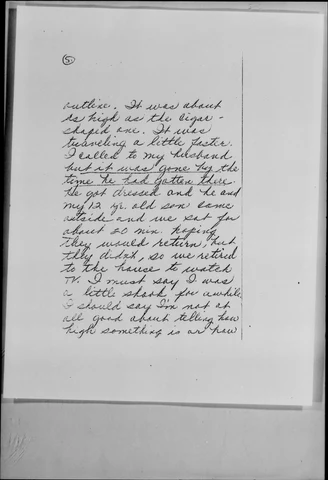 5.
outline. It was about
as high as the cigar-
shaped one. It was
traveling a little faster.
I called to my husband
but it was gone by the
time he had gotten there.
He got dressed and he and
my 12 yr. old son came
outside and we sat for
about 20 min. hoping
they would return, but
they didn't, so we retired
to the house to watch
TV. I must say I was
a little shook for awhile.
I should say I'm not at
all good about telling how
high something is or how